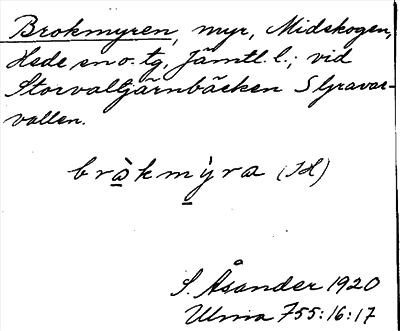 Brokmyren, myr, Midskogen,
Hede sn o. tg, Jämtl. l.; vid
Storvaltjärnbäcken S Gravar-
vallen.
brå̱̀km̱ỳra (JH)
S. Åsander 1920
Ulma 755:16:17